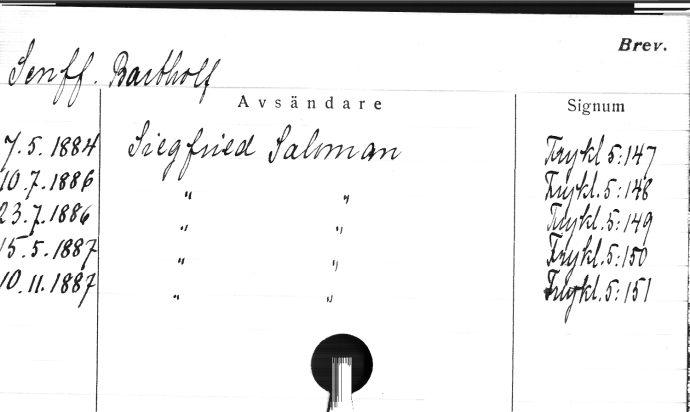 Brev.
Senff. Bartholf
Avsändare Signum
7.5.1884 Siegfried Saloman Frykl 5:147
10.7.1886 " " Frykl.5:148
23.7.1886 " " Frykl.5:149
15.5.1887 " " Frykl.5:150
10.11.1887 " " Frykl.5:151